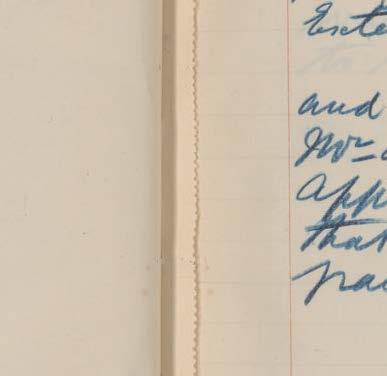 Exte
and
Mr-
app
that
pa